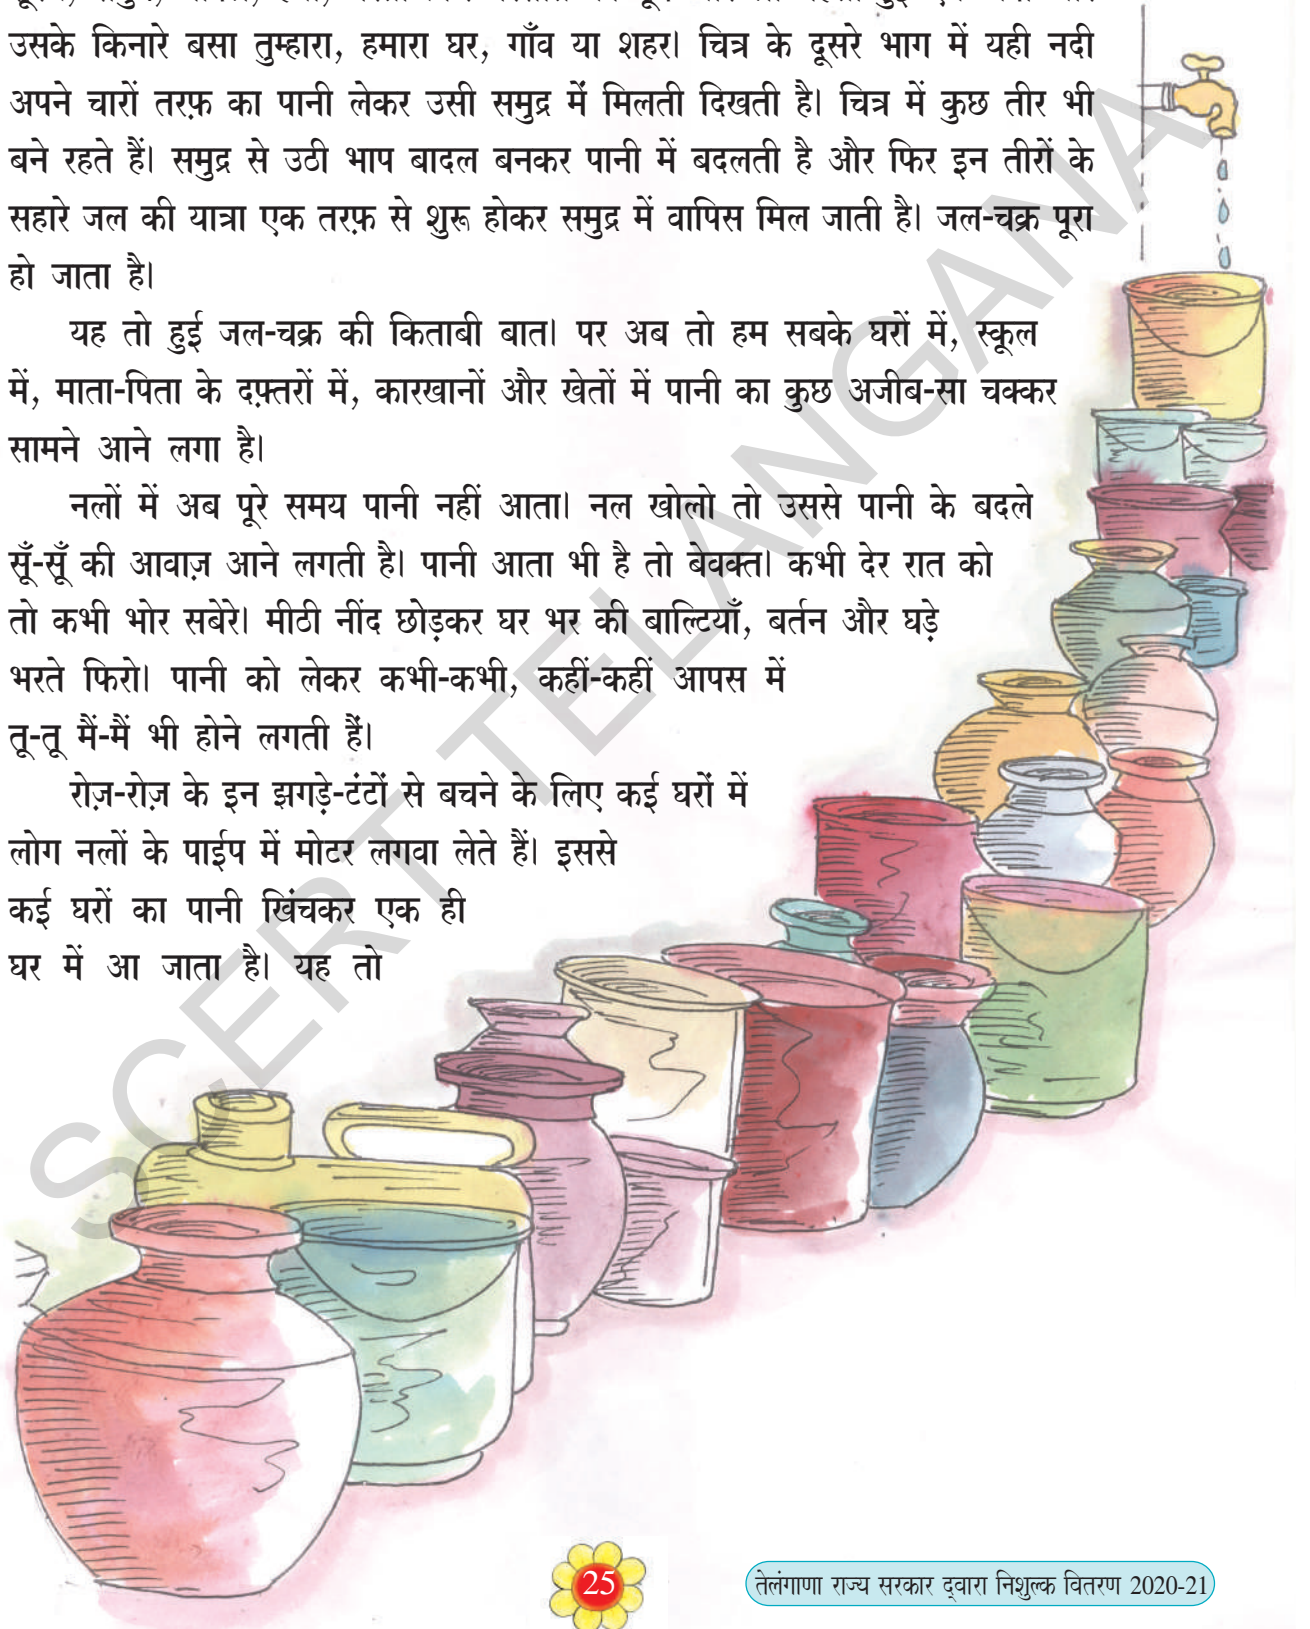 उसके किनारे बसा तुम्हारा, हमारा घर, गाँव या शहर। चित्र के दूसरे भाग में यही नदी
अपने चारों तरफ़ का पानी लेकर उसी समुद्र में मिलती दिखती है। चित्र में कुछ तीर भी
बने रहते हैं। समुद्र से उठी भाप बादल बनकर पानी में बदलती है और फिर इन तीरों के
सहारे जल की यात्रा एक तरफ़ से शुरू होकर समुद्र में वापिस मिल जाती है। जल-चक्र पूरा
हो जाता है।
यह तो हुई जल-चक्र की किताबी बात। पर अब तो हम सबके घरों में, स्कूल
में, माता-पिता के दफ़्तरों में, कारखानों और खेतों में पानी का कुछ अजीब-सा चक्कर
सामने आने लगा है।
नलों में अब पूरे समय पानी नहीं आता। नल खोलो तो उससे पानी के बदले
सूँ-सूँ की आवाज़ आने लगती है। पानी आता भी है तो बेवक्त। कभी देर रात को
तो कभी भोर सबेरे। मीठी नींद छोड़कर घर भर की बाल्टियाँ, बर्तन और घड़े
भरते फिरो। पानी को लेकर कभी-कभी, कहीं-कहीं आपस में
तू-तू मैं-मैं भी होने लगती हैं।
रोज़-रोज़ के इन झगड़े-टंटों से बचने के लिए कई घरों में
लोग नलों के पाईप में मोटर लगवा लेते हैं। इससे
कई घरों का पानी खिंचकर एक ही
घर में आ जाता है। यह तो
SCERT TELANGANA
25
तेलंगाणा राज्य सरकार द्वारा निशुल्क वितरण 2020-21